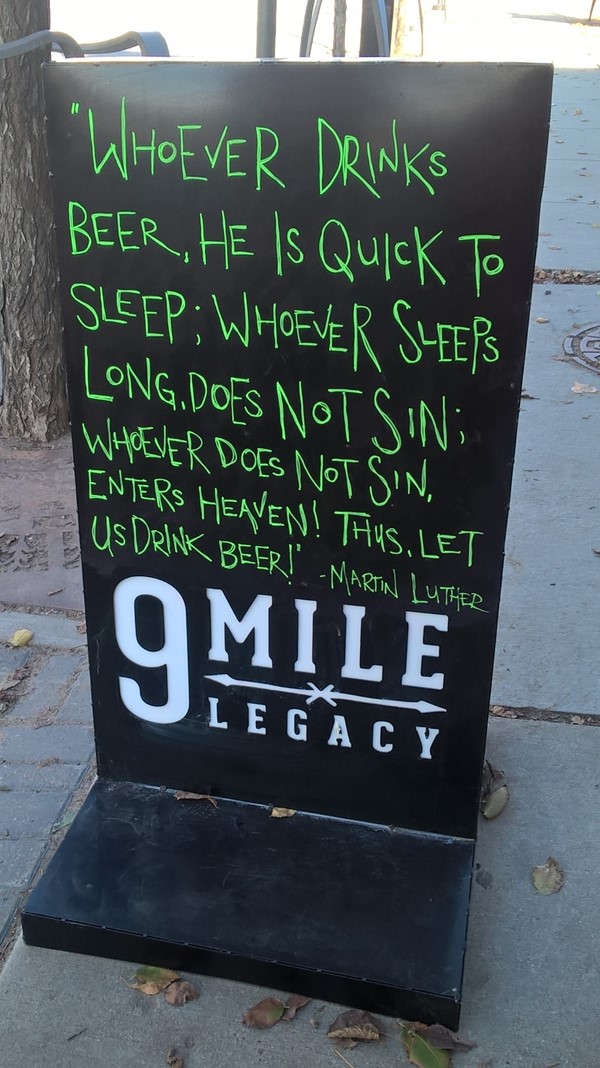 "WHOEVER DRINKS
BEER, HE IS QUICK TO
SLEEP; WHOEVER SLEEPS
LONG, DOES NOT SIN;
WHOEVER DOES NOT SIN,
ENTERS HEAVEN! THUS, LET
US DRINK BEER!" -MARTIN LUTHER
9 MILE
LEGACY